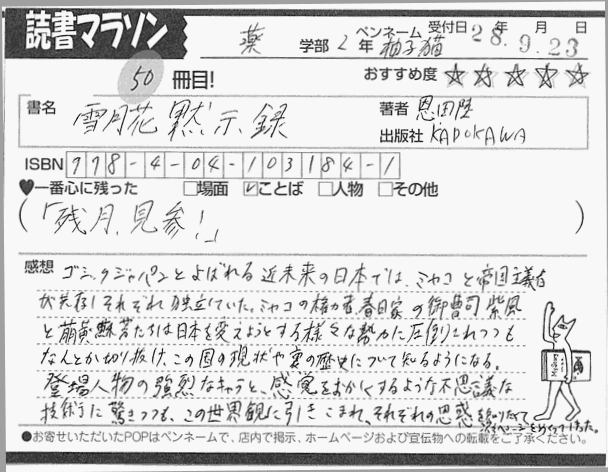 読書マラソン
薬 学部 2 年 ペンネーム 柚子猫 受付日 28. 9. 23 年 月 日
50 冊目! おすすめ度 ☆☆☆☆☆
書名 雪月花黙示録 著者 恩田陸
出版社 KADOKAWA
ISBN 978-4-04-103184-1
♥一番心に残った □場面 ☑ことば □人物 □その他
(「残月、見参!」)
感想 ゴシックジャパンとよばれる近未来の日本では、ミヤコと帝国主義者
が共存しそれぞれ独立していた。ミヤコの権力者、春日家の御曹司 紫風
と萌黄、蘇芳たちは日本を変えようとする様々な勢力に圧倒されつつも
なんとか切り抜け、この国の現状や裏の歴史について知るようになる。
登場人物の強烈なキャラと、感覚をまひくするような不思議な
技術に驚きつつも、この世界観に引きこまれ、それぞれの思惑
●お寄せいただいたPOPはペンネームで、店内で掲示、ホームページおよび宣伝物への転載をご了承ください。